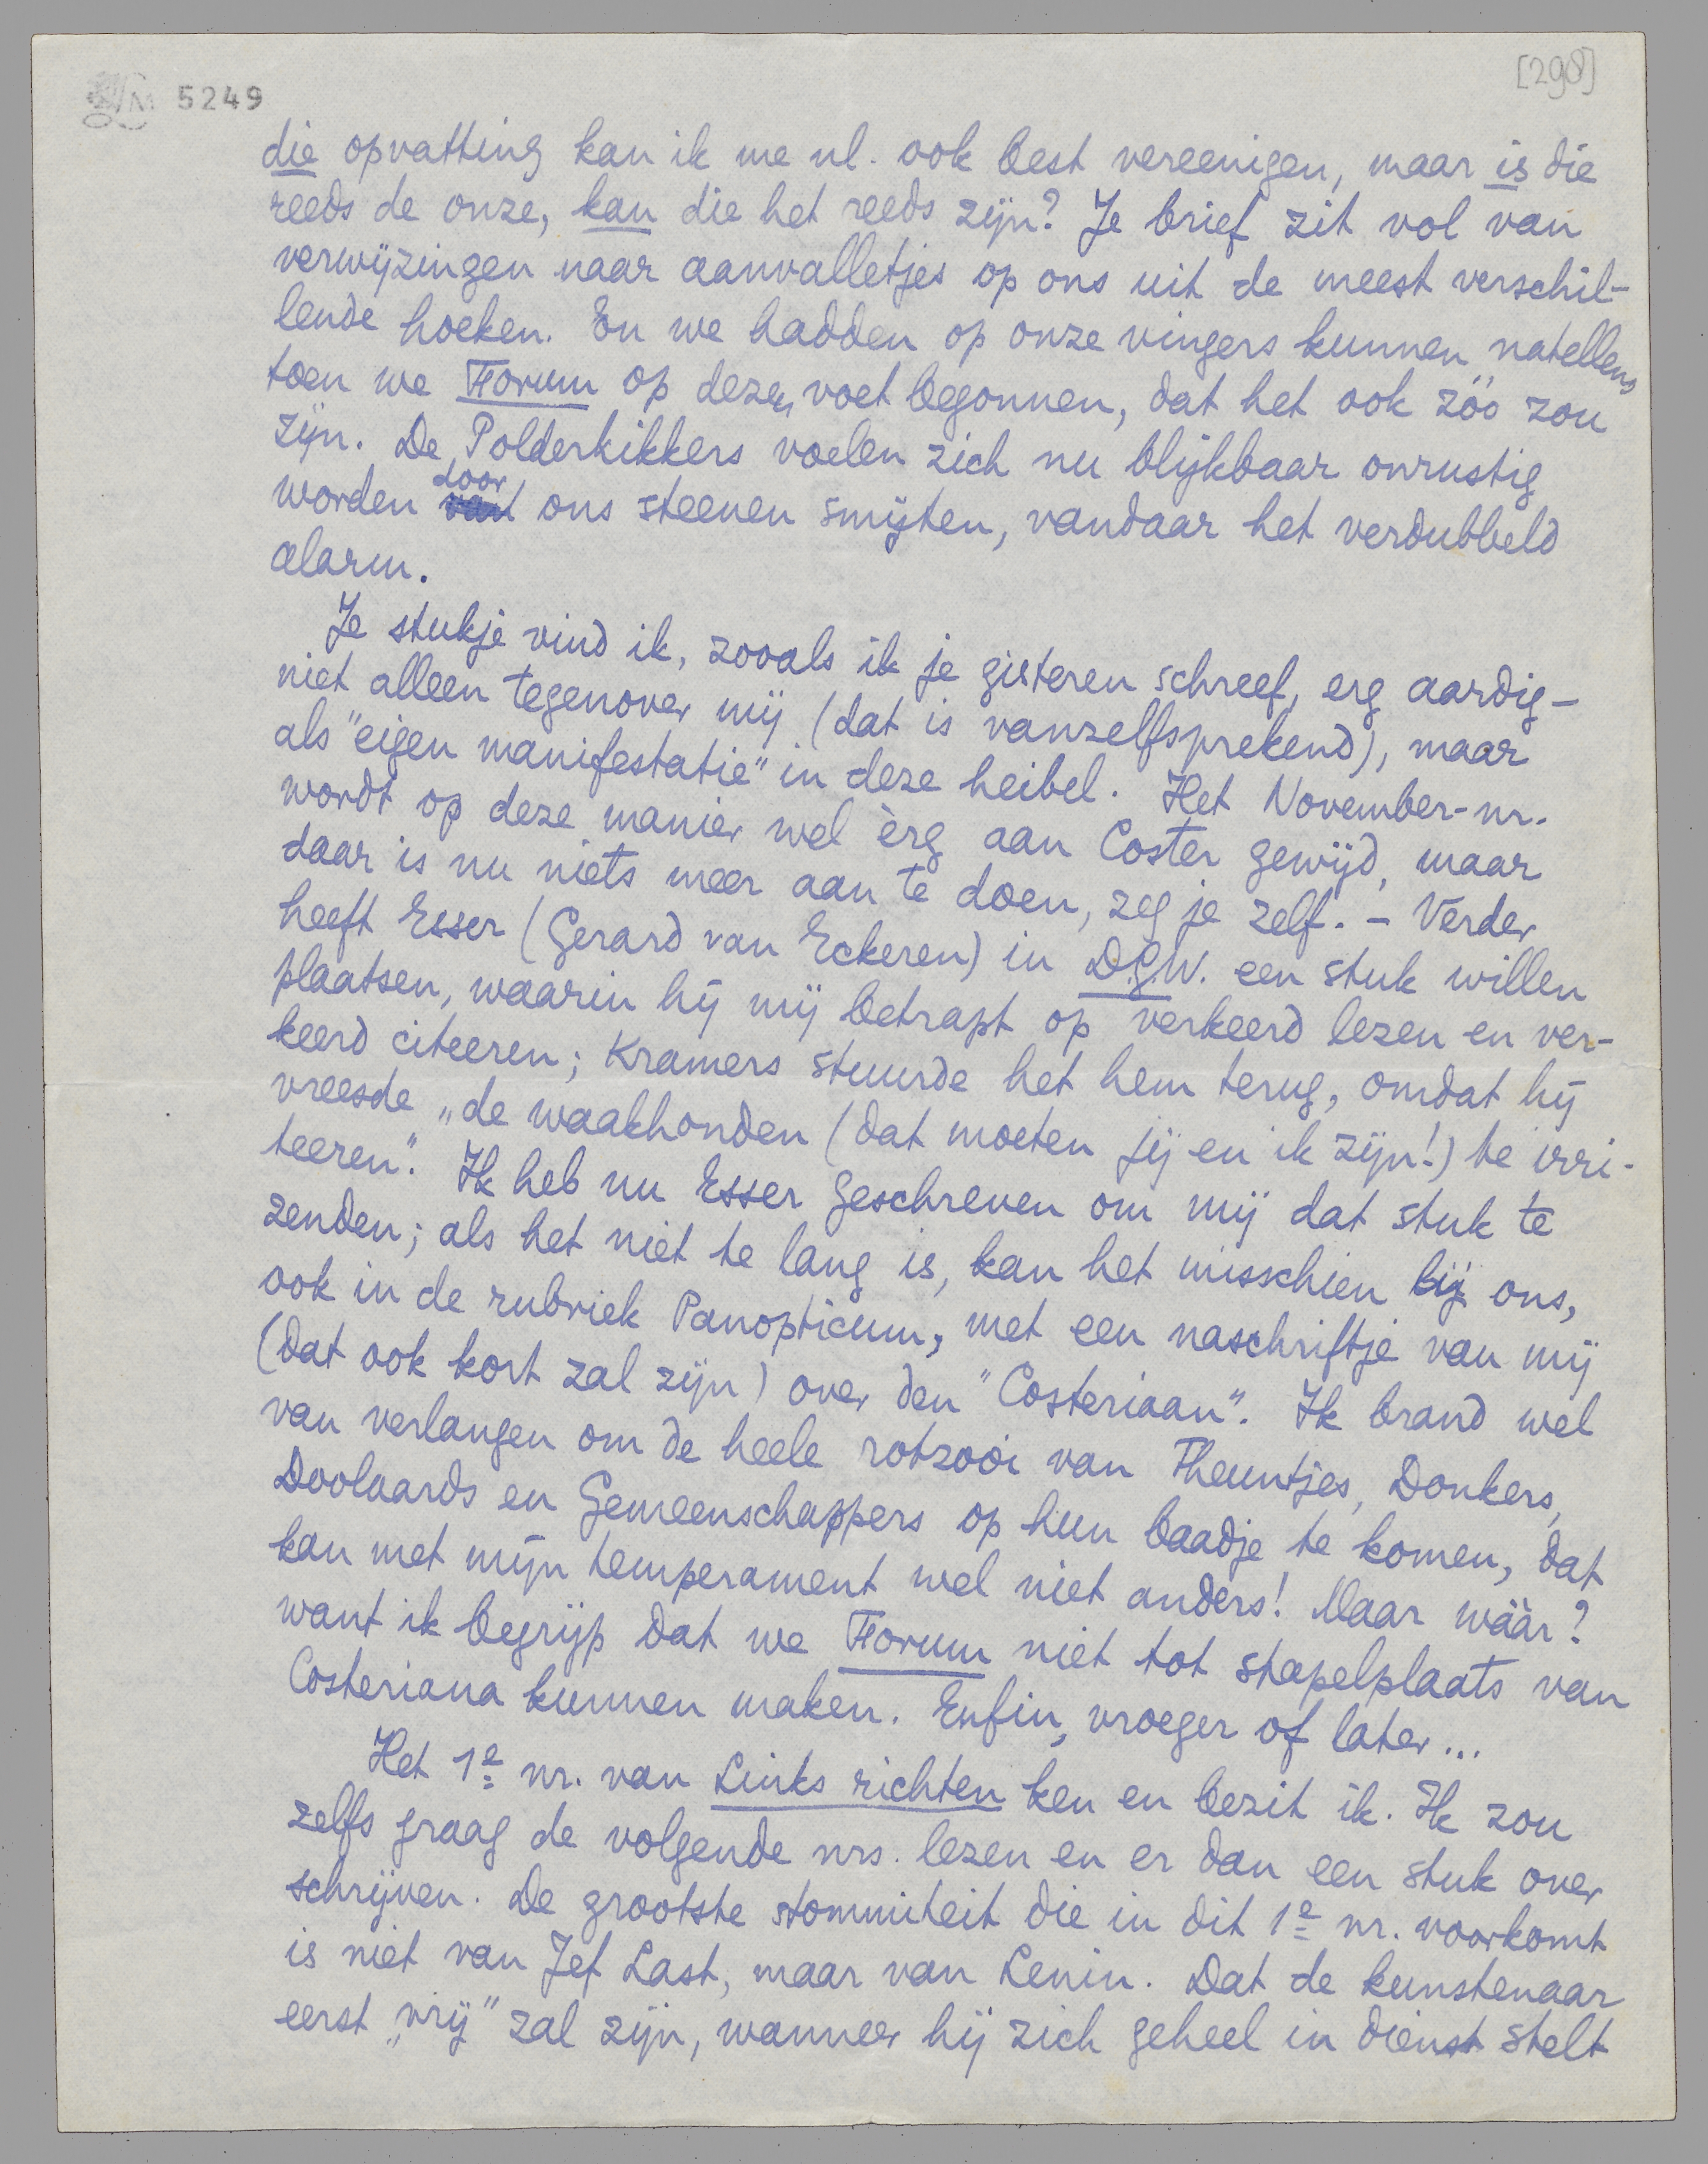 LM 5249
[298]
die opvatting kan ik me nl. ook best vereenigen, maar is die
reeds de onze, kan die het reeds zijn? Je brief zit vol van
verwijzingen naar aanvalletjes op ons uit de meest verschil-
lende hoeken. En we hadden op onze vingers kunnen natellens
toen we Forum op dezen voet begonnen, dat het ook zóó zou
zijn. De Polderkikkers voelen zich nu blijkbaar onrustig
worden door ons steenen smijten, vandaar het verdubbeld
alarm.
Je stukje vind ik, zooals ik je gisteren schreef, erg aardig –
niet alleen tegenover mij (dat is vanzelfsprekend), maar
als "eigen manifestatie" in deze heibel. Het November-nr.
wordt op deze manier wel èrg aan Coster gewijd, maar
daar is nu niets meer aan te doen, zeg je zelf. – Verder
heeft Esser (Gerard van Eckeren) in D.G.W. een stuk willen
plaatsen, waarin hij mij betrapt op verkeerd lezen en ver-
keerd citeeren; Kramers stuurde het hem terug, omdat hij
vreesde „de waakhonden (dat moeten jij en ik zijn!) te irri-
teeren". Ik heb nu Esser geschreven om mij dat stuk te
zenden; als het niet te lang is, kan het misschien bij ons,
ook in de rubriek Panopticum, met een naschriftje van mij
(dat ook kort zal zijn) over den "Costeriaan". Ik brand wel
van verlangen om de heele rotzooi van Theuntjes, Donkers,
Doolaards en Gemeenschappers op hun baadje te komen, dat
kan met mijn temperament wel niet anders! Maar wáár?
want ik begrijp dat we Forum niet tot stapelplaats van
Costeriana kunnen maken. Enfin, vroeger of later...
Het 1e nr. van Links richten ken en bezit ik. Ik zou
zelfs graag de volgende nrs. lezen en er dan een stuk over
schrijven. De grootste stommiteit die in dit 1e nr. voorkomt
is niet van Jef Last, maar van Lenin. Dat de kunstenaar
eerst „vrij" zal zijn, wanneer hij zich geheel in dienst stelt